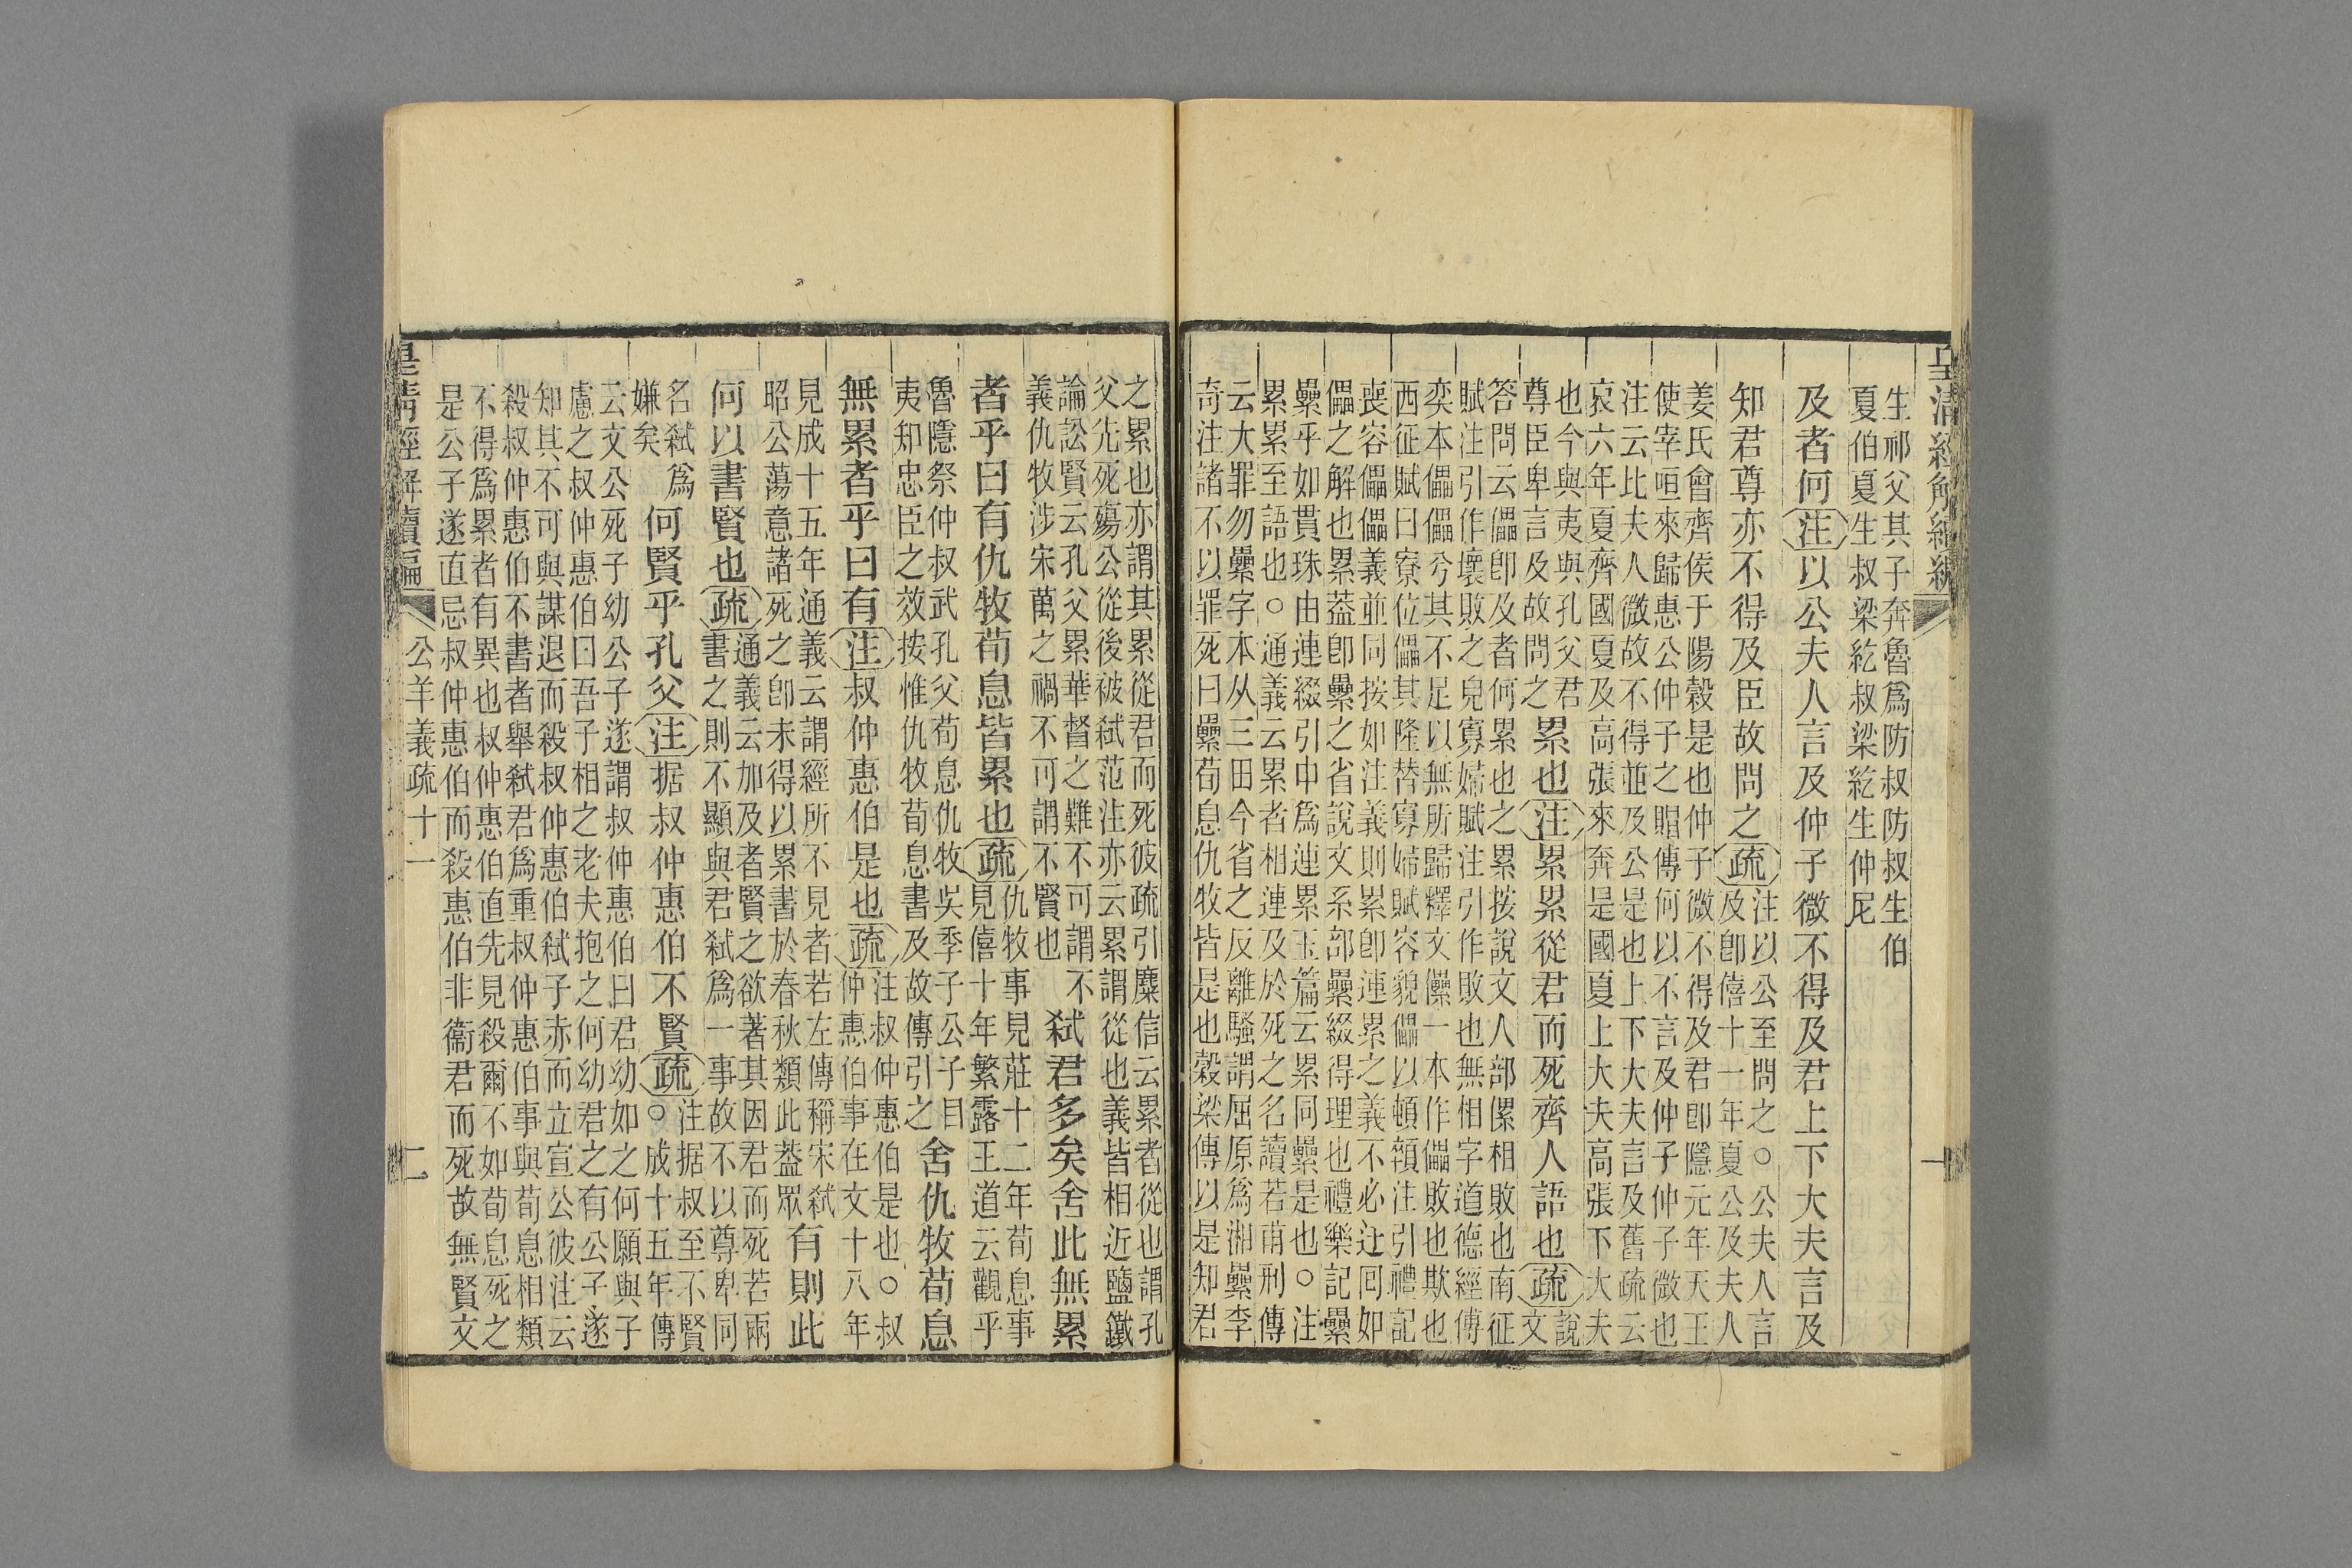 皇清經解續編
一
生祁父其子奔魯爲防叔防叔生伯
夏伯夏生叔梁紇叔梁紇生仲尼
及者何注以公夫人言及仲子微不得及君上下大夫言及
知君尊亦不得及臣故問之疏
注以公至問之○公夫人言
及卽僖十一年夏公及夫人
姜氏會齊侯于陽穀是也仲子微不得及君卽隱元年天王
使宰咺來歸惠公仲子之賵傳何以不言及仲子仲子微也
注云比夫人微故不得並及公是也上下大夫言及舊疏云
哀六年夏齊國夏及高張來奔是國夏上大夫高張下大夫
也今與夷與孔父君
尊臣卑言及故問之
累也注累累從君而死齊人語也疏
說
文
答問云儡卽及者何累也之累按說文人部傫相敗也南征
賦注引作壞敗之皃寡婦賦注引作敗也無相字道德經傳
奕本儡儡兮其不足以無所歸釋文儽一本作儡敗也欺也
西征賦曰寮位儡其隆替寡婦賦容貌儡以頓顇注引禮記
喪容儡儡義並同按如注義則累卽連累之義不必迂回如
儡之解也累蓋卽纍之省說文系部纍綴得理也禮樂記纍
纍乎如貫珠由連綴引申爲連累玉篇云累同纍是也○注
累累至語也○通義云累者相連及於死之名讀若甫刑傳
云大罪勿纍字本从三田今省之反離騷謂屈原爲湘纍李
奇注諸不以罪死曰纍荀息仇牧皆是也穀梁傳以是知君
之累也亦謂其累從君而死彼疏引麋信云累者從也謂孔
父先死殤公從後被弒范注亦云累謂從也義皆相近鹽鐵
論訟賢云孔父累華督之難不可謂不
義仇牧涉宋萬之禍不可謂不賢也
弒君多矣舍此無累
者乎曰有仇牧荀息皆累也疏
仇牧事見莊十二年荀息事
見僖十年繁露王道云觀乎
魯隱祭仲叔武孔父荀息仇牧吳季子公子目
夷知忠臣之效按惟仇牧荀息書及故傳引之
舍仇牧荀息
無累者乎曰有注叔仲惠伯是也疏
注叔仲惠伯是也○叔
仲惠伯事在文十八年
見成十五年通義云謂經所不見者若左傳稱宋弒
昭公蕩意諸死之卽未得以累書於春秋類此蓋眾
有則此
何以書賢也疏
通義云加及者賢之欲著其因君而死若兩
書之則不顯與君弒爲一事故不以尊卑同
名弒爲
嫌矣
何賢乎孔父注据叔仲惠伯不賢疏
注据叔至不賢
○成十五年傳
云文公死子幼公子遂謂叔仲惠伯曰君幼如之何願與子
慮之叔仲惠伯曰吾子相之老夫抱之何幼君之有公子遂
知其不可與謀退而殺叔仲惠伯弒子赤而立宣公彼注云
殺叔仲惠伯不書者舉弒君爲重叔仲惠伯事與荀息相類
不得爲累者有異也叔仲惠伯直先見殺爾不如荀息死之
是公子遂直忌叔仲惠伯而殺惠伯非衞君而死故無賢文
皇清經解續編
公羊義疏十一
二